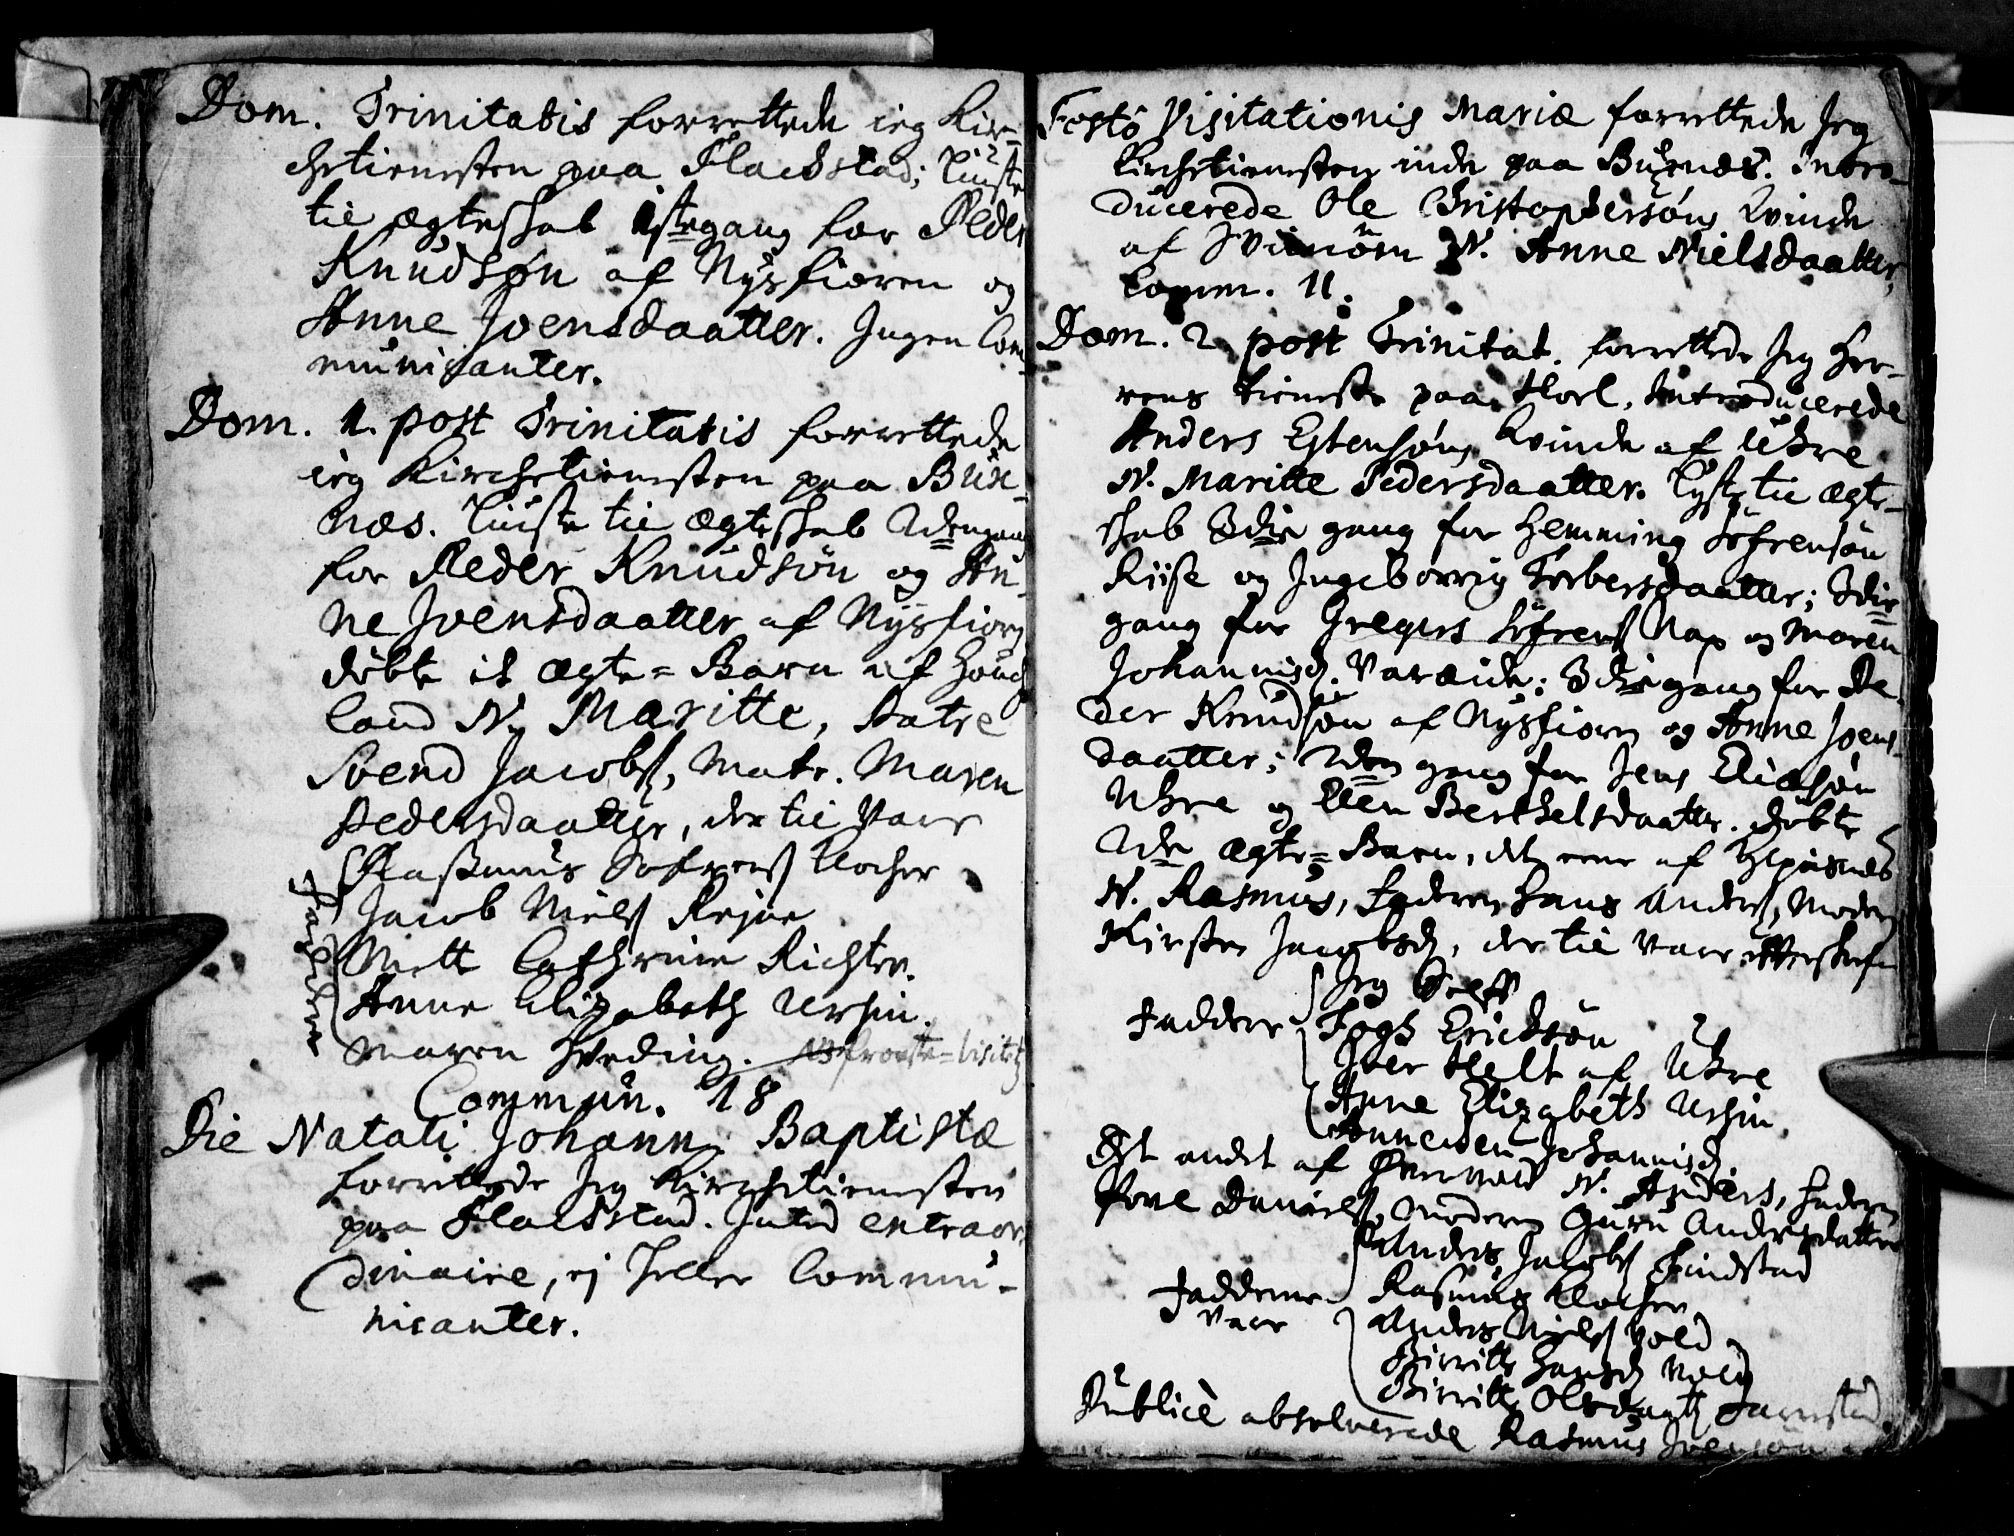 Dom. Trinitatis forrettede ieg Kir-
chetienesten paa Flackstad; Liuste
til ægteskab 1ste gang for Peder
Knudsøn af Nysfioren og
Anne Joensdaatter. Ingen Com-
municanter.
Dom. 1. post Trinitatis forrettede
ieg Kirchetienesten paa Bux-
næs. Liuste til ægteskab 2den gang
for Peder Knudsøn og An-
ne Joensdaatter af Nysfiorn
døbte it ægte-Barn af Houg
land N. Maritte, Patre
Svend Jacobs, Matr. Maren
Pedersdaatter, der til Vare
Faddere
Rasmus Sofrens Klocher
Jacob Niels Reine
Mett Cathrine Richter.
Anne Elizabeth Ursin.
Maren Hveding. NB Prouste-Visitatz
Commun. 18
Die Natali Johann. Baptistæ
forrettede Jeg Kirchetienesten
paa Flackstad. Inted extraor-
dinaire, ej heller Commu-
nicanter.
Festo Visitationis Mariæ forrettede Jeg
Kirchetienesten inde paa Buxnæs. Intro-
ducerede Ole Christophersøns Kvinde
af N. Anne Nielsdaatter,
Comm. 11.
Dom. 2 post Trinitat. forrettede Jeg Her-
rens tieneste paa Hoel, Introducerede
Anders Estensøns Kvinde af Uhre
N. Maritte Pedersdaatter. Lyste til ægte-
skab 3die gang for Hemming Sofrensøn
Riise og Ingeborrig Torbersdaatter; 3die
gang for Gregers Sofrens Nap og Maren
Johannisd. Varæide; 3die gang for Pe-
der Knudsøn af Nysfiorn og Anne Joens-
daatter; 2den gang for Jens Eliæsøn
Uhre og Ellen Berthelsdaatter. døbte
2de ægte-Barn, det eene af
N. Rasmus, Faderen Hans Anders, Moderen
Kirsten Jacobsd, der til vare
Faddere
Jeg Self
Fogh Ericksøn
Iver Helt af Uhre
Anne Elizabeth Ursin.
Johannisd.
Det andet af N. Anders, Faderen
Povel Daniels, Moderen Guru Andersdatter
Fadderne
Vare
Anders Jacobs Findstad
Rasmus Klocher
Anders Niels Vold
Birritte Hansd Vold
Birritte Olsdaatt
Publicè absolverede Rasmus Joensøn